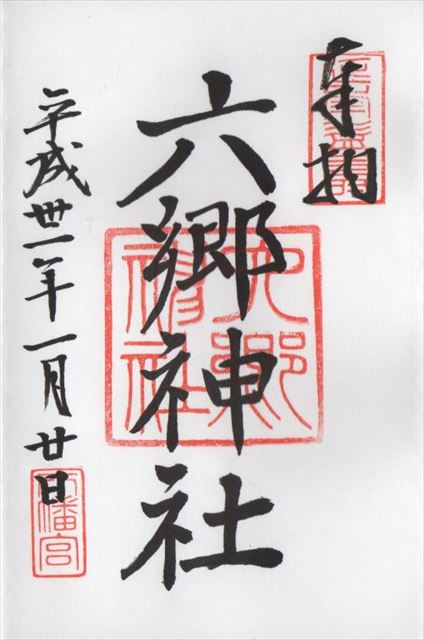 奉拝
六郷神社
六郷神社
平成卅一年一月廿日
八幡宮